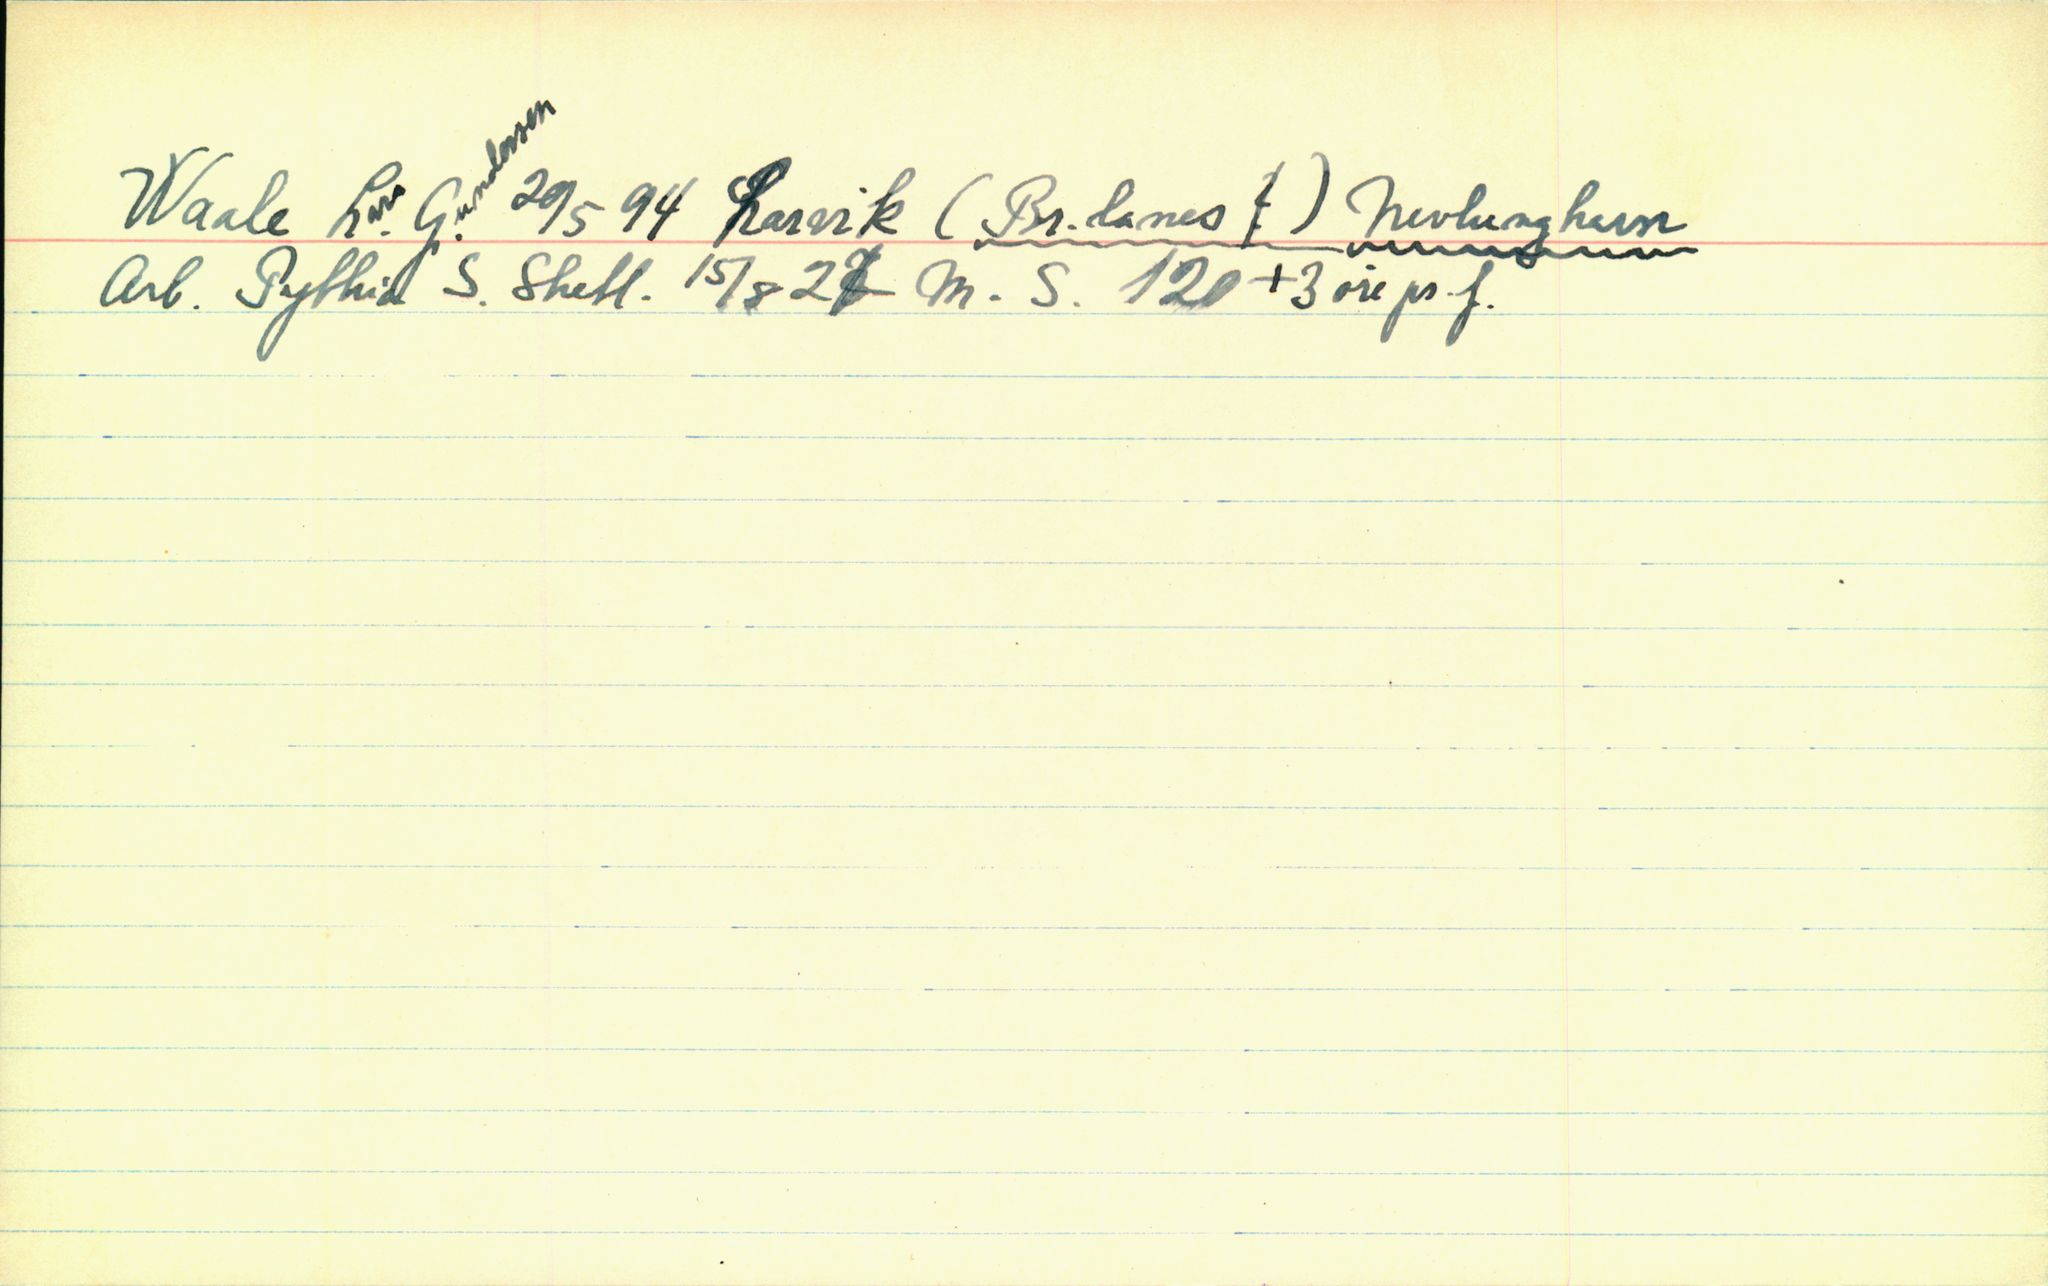 Waale Lars G. Gundersen 20/5 94 Larvik (Br.lanes f.) Nevlunghavn
Arb. Pythia S. Shetl. 15/8 27 M. S. 120 +3 øre pr. f.